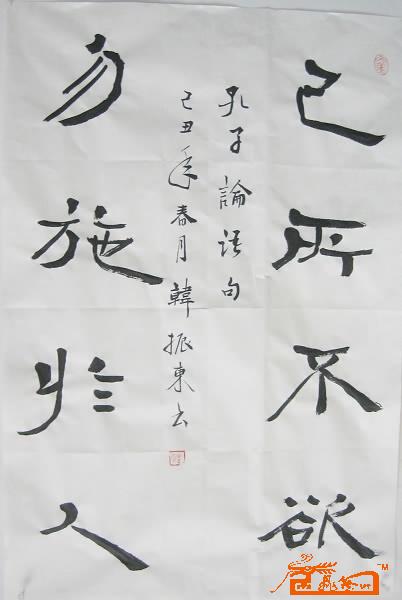 己所不欲
孔子論語句
己丑年春月韓振東書
勿施於人